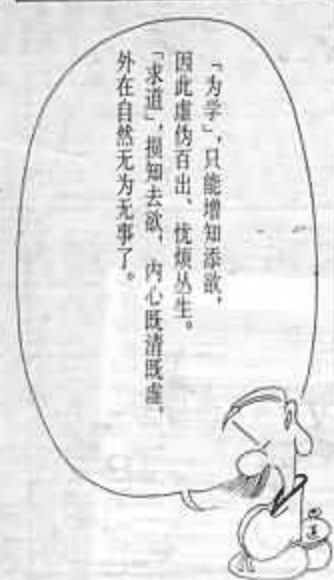 「为学」，只能增知添欲，
因此虚伪百出、忧烦丛生。
「求道」，损知去欲，内心既清既虚，
外在自然无为无事了。